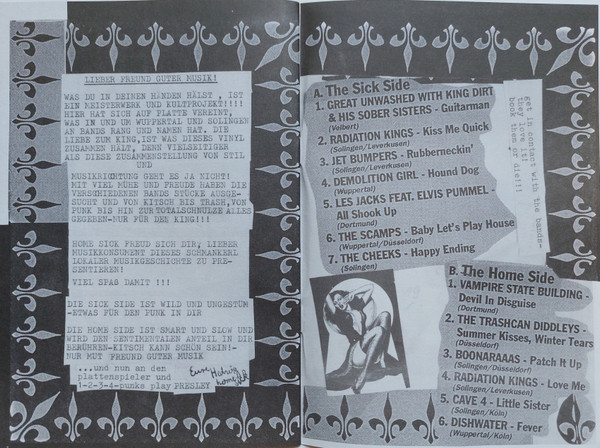 LIEBER FREUND GUTER MUSIK!
WAS DU IN DEINEN HÄNDEN HÄLST , IST
EIN MEISTERWERK UND KULTPROJEKT!!!!
HIER HAT SICH AUF PLATTE VEREINT,
WAS IN UND UM WUPPERTAL UND SOLINGEN
AN BANDS RANG UND NAMEN HAT. DIE
LIEBE ZUM KING,IST WAS DIESES VINYL
ZUSAMMEN HÄLT, DENN VIELSEITIGER
ALS DIESE ZUSAMMENSTELLUNG VON STIL
UND
MUSIKRICHTUNG GEHT ES JA NICHT!
MIT VIEL MÜHE UND FREUDE HABEN DIE
VERSCHIEDENEN BANDS STÜCKE AUSGE-
SUCHT UND VON KITSCH BIS TRASH,VON
PUNK BIS HIN ZUR TOTALSCHNULZE ALLES
GEGEBEN-NUR FÜR DEN KING!!!
HOME SICK FREUD SICH DIR, LIEBER
MUSIKKONSUMENT DIESES SCHMANKERL
LOKALER MUSIKGESCHICHTE ZU PRE-
SENTIEREN!
VIEL SPAS DAMIT !!!
DIE SICK SIDE IST WILD UND UNGESTÜM
-ETWAS FÜR DEN PUNK IN DIR
DIE HOME SIDE IST SMART UND SLOW UND
WIRD DEN SENTIMENTALEN ANTEIL IN DIR
BERÜHREN-KITSCH KANN SCHÖN SEIN!-
NUR MUT FREUND GUTER MUSIK
...und nun an den
plattenspieler und
1-2-3-4-punks play PRESLEY
Eure
A. The Sick Side
1. GREAT UNWASHED WITH KING DIRT
& HIS SOBER SISTERS - Guitarman
(Velbert)
2. RADIATION KINGS - Kiss Me Quick
(Solingen/Leverkusen)
3. JET BUMPERS - Rubberneckin'
(Solingen/Leverkusen)
4. DEMOLITION GIRL - Hound Dog
(Wuppertal)
5. LES JACKS FEAT. ELVIS PUMMEL -
All Shook Up
(Dortmund)
6. THE SCAMPS - Baby Let's Play House
(Wuppertal/Düsseldorf)
7. THE CHEEKS - Happy Ending
(Solingen)
get in contact with the bands-
they love it!
book them or die!!!
B. The Home Side
1. VAMPIRE STATE BUILDING -
Devil In Disguise
(Dortmund)
2. THE TRASHCAN DIDDLEYS -
Summer Kisses, Winter Tears
(Düsseldorf)
3. BOONARAAAS - Patch It Up
(Solingen/Düsseldorf)
4. RADIATION KINGS - Love Me
(Solingen/Leverkusen)
5. CAVE 4 - Little Sister
(Solingen/Köln)
6. DISHWATER - Fever
(Wuppertal/Köln)